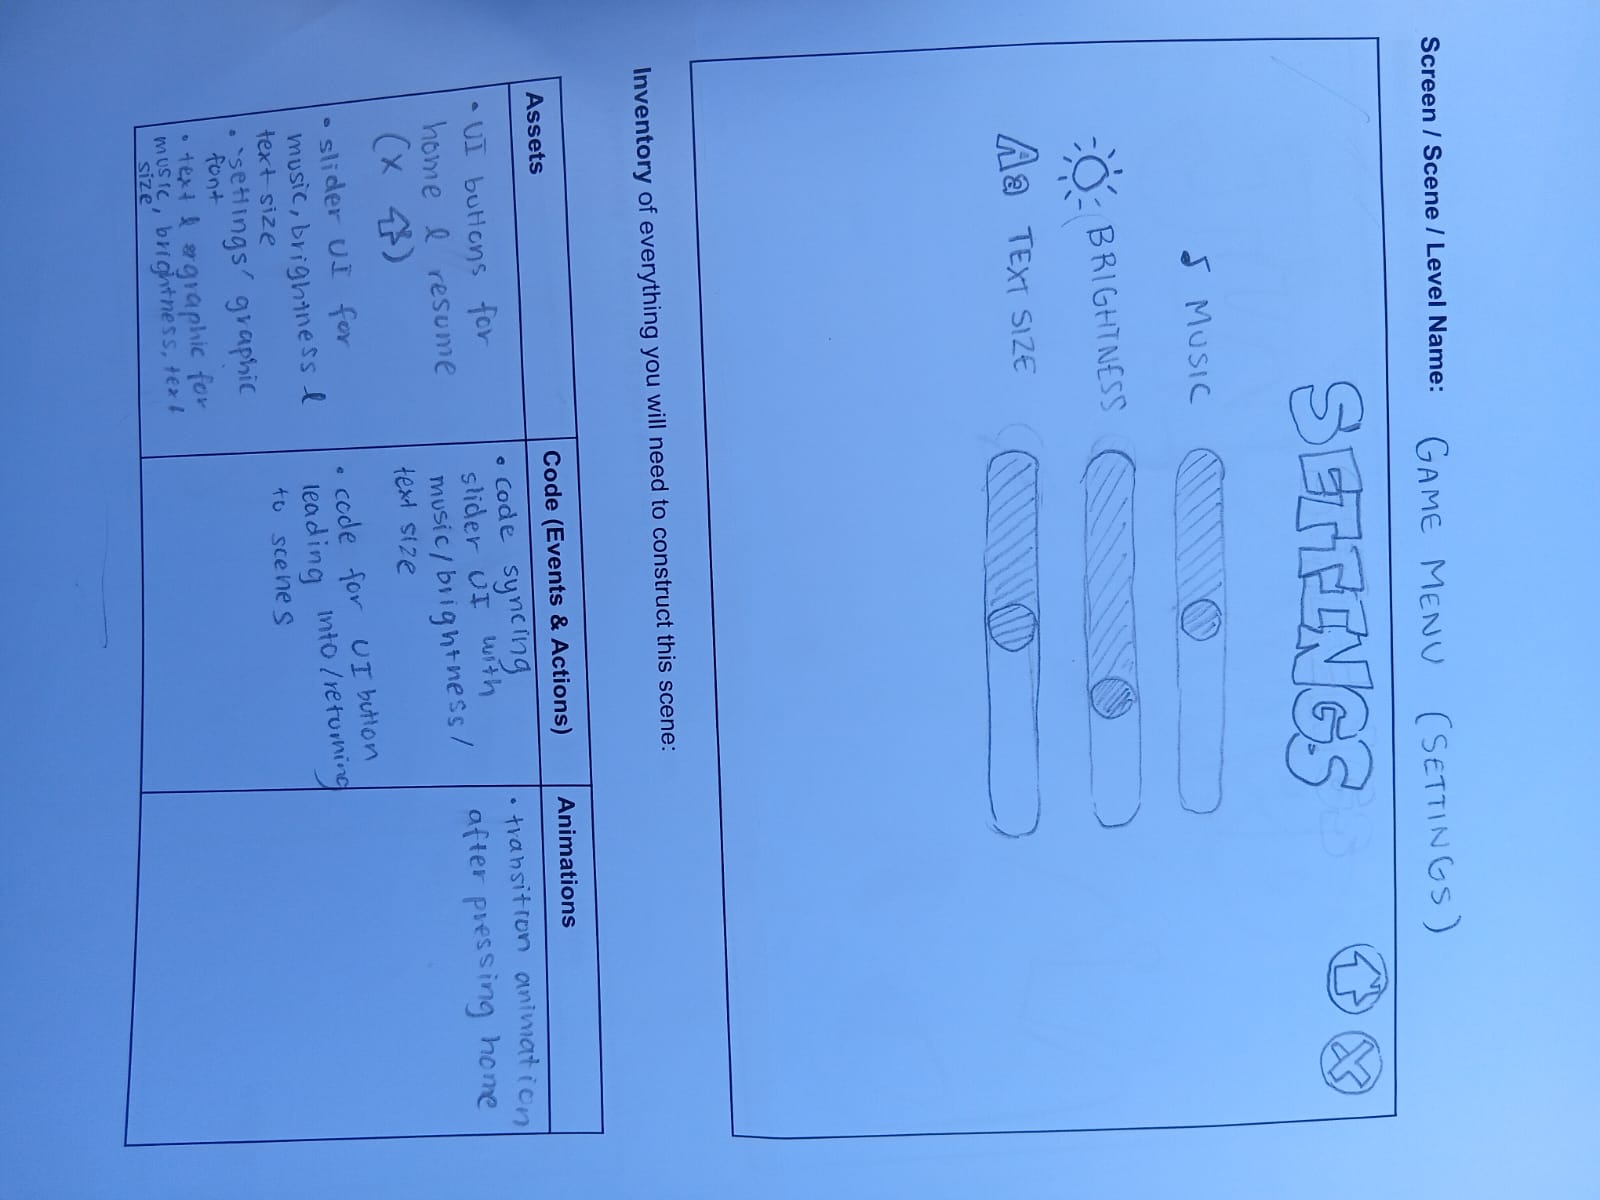 Screen / Scene / Level Name: GAME MENU (SETTINGS)
SETTINGS
MUSIC
BRIGHTNESS
Aa TEXT SIZE
Inventory of everything you will need to construct this scene:
Assets
• UI buttons for
home & resume
(x )
• slider UI for
music, brightness &
text size
• 'settings' graphic
font
• text & graphic for
music, brightness, text
size
Code (Events & Actions)
• code syncing
slider UI with
music/brightness/
text size
• code for UI button
leading into/returning
to scenes
Animations
• transition animation
after pressing home